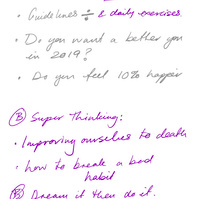 • Guidelines ÷ & daily exercises.
• Do you want a better you
in 2019?
• Do you feel 10% happier
Ⓑ Super Thinking:
• Improving ourselves to death
• how to break a bad
habit
Ⓑ Dream it then do it.